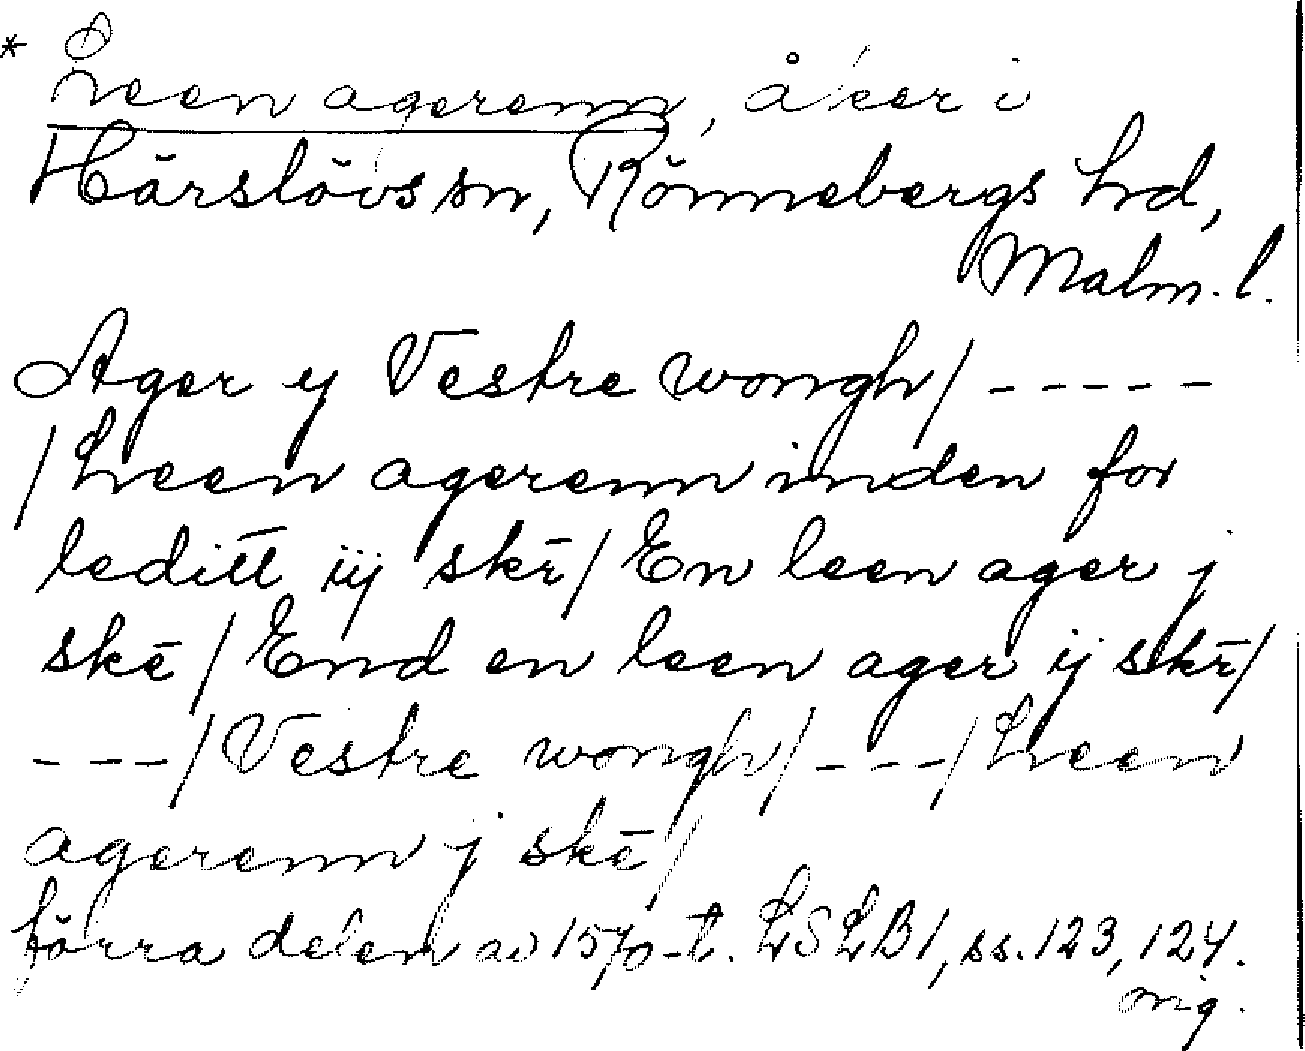 * Leen agerenn, åker i
Härslövs sn, Rönnebergs hd,
Malm. l.
Ager y Vestre wongh/ - - - - -
/Leen agerenn inden for
leditt iij skē/ En leen ager j
skē/ End en leen ager ij skē/
- - -/ Vestre wongh/ - - -/ Leen
agerenn j skē/
förra delen av 1570-t. LSLB1, ss. 123, 124.
orig.